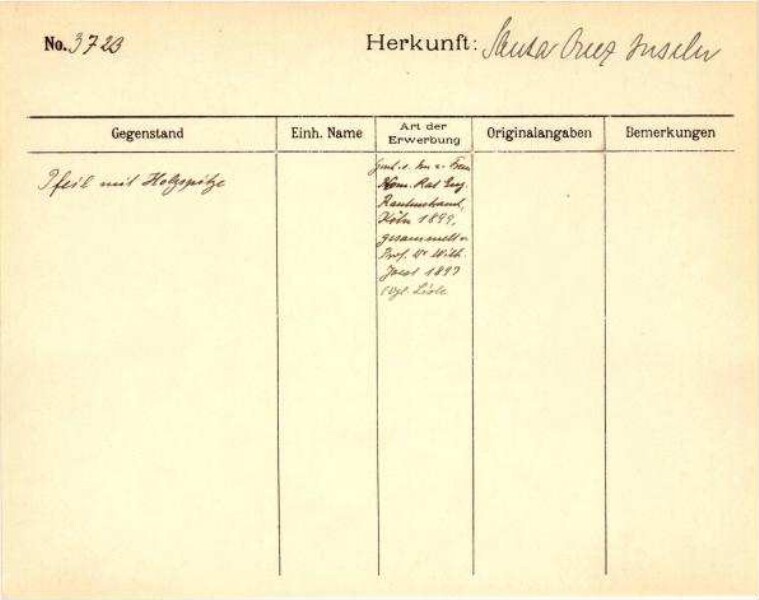 No. 3723 Herkunft: Santa Cruz Inseln
Gegenstand Einh. Name Art der Erwerbung Originalangaben Bemerkungen
Pfeil mit Holzspitze
Gesch. v. Frau
Kom. Rat Eug.
Rautenstrauch,
Köln 1899,
gesammelt v.
Prof. Dr Wilh.
Joest 1897
(vgl. Liste